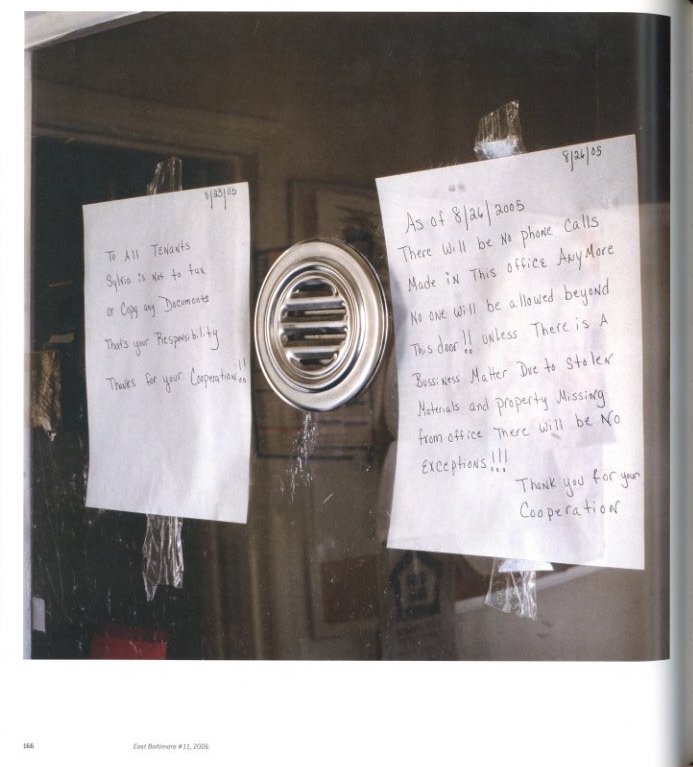 8/25/05
To All Tenants
Sylvia is Not to fax
or Copy any Documents
That's your Responsibility
Thanks for your Cooperation!!
8/26/05
As of 8/26/2005
There Will be No phone Calls
Made in This office AnyMore
No one will be allowed beyond
This door!! unless There is A
Bussiness Matter Due to Stolen
Materials and property Missing
from office There will be No
Exceptions!!!
Thank you for your
Cooperation
166
East Baltimore #11, 2006